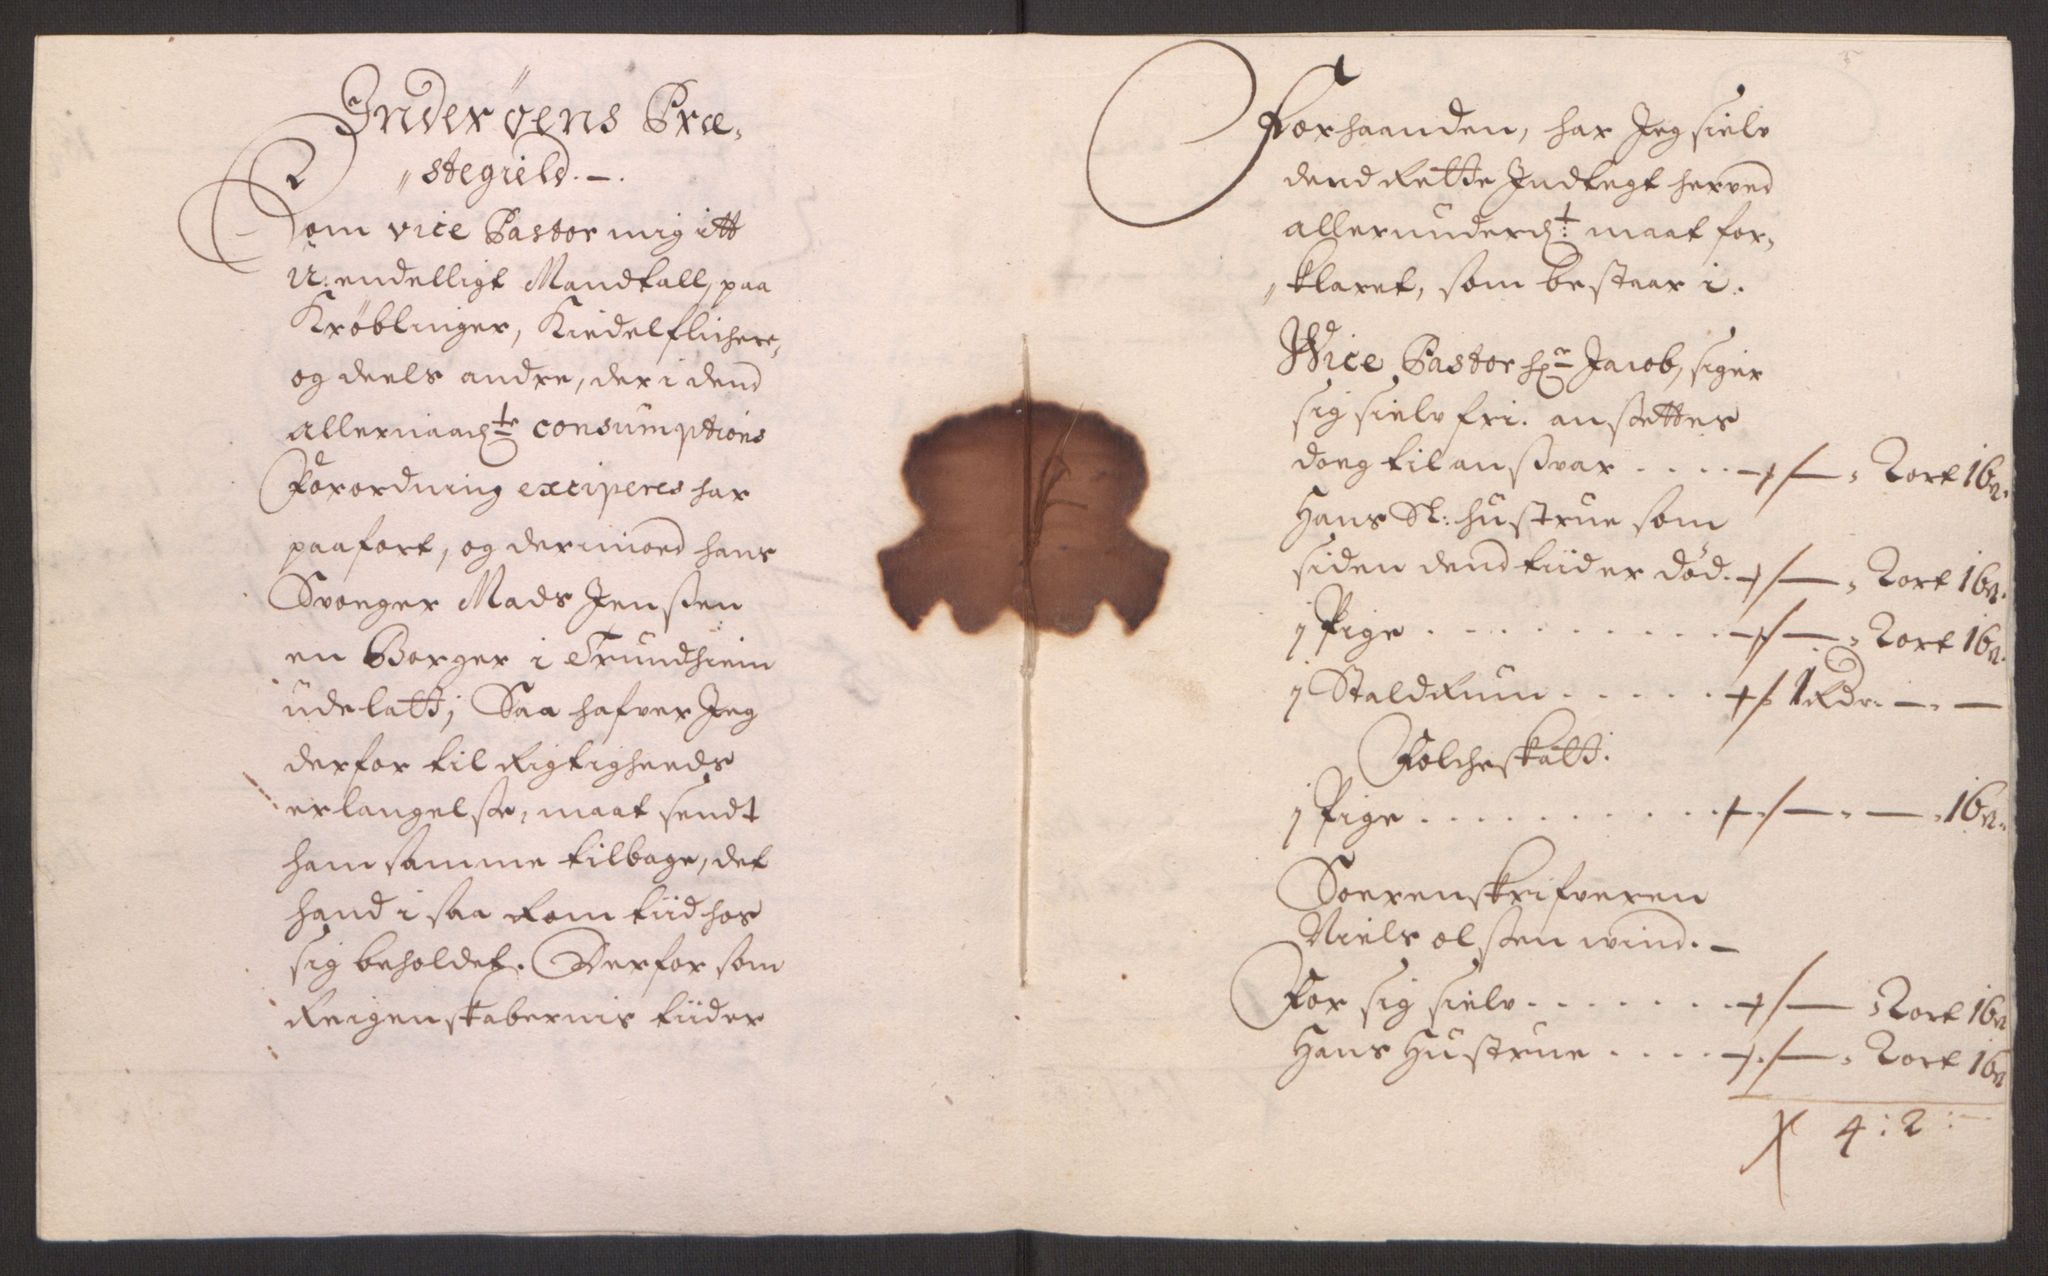 Inderøens Præ-
stegield.
Som vice Pastor mig itt
u-endelligt Mandtall, paa
Krøblinger, Kiedelflichere,
og deels andre, der i dend
allernaadste consumptions
Forordning exciperes har
paafört, og derimoed hans
Svoeger Mads Jenssen
en Borger i Trundhiem
udelatt; Saa hafver Jeg
derfor til Rigtigheeds
erlangelse, maat sendt
ham samme tilbage, det
hand i saa Rom tiid hos
sig beholdet. Derfor som
Reigenskabernis tiider
Forhaanden, har Jeg sielv
dend Rette Indtegt herved
allerunderd:t maat for-
klaret, som bestaar i.
Wice Pastor Hr Jacob, siger
sig sielv fri. ansettes
doeg til ansvar . . . . 2 ort 16 s.
Hans Sl: hustrue som
siden dend tiid er död. 2 ort 16 s.
j Pige . . . . . . . . 2 ort 16 s.
j Staldruun . . . . . 1 Rdr. — —
Folcheskatt.
j Pige . . . . . . . . . . — — 16 s.
Soerenskrifveren
Niels olssen wind.
For sig sielv . . . . . . . 2 ort 16 s
Hans Hustrue . . . . 2 ort 16 s
4 : 2 : —